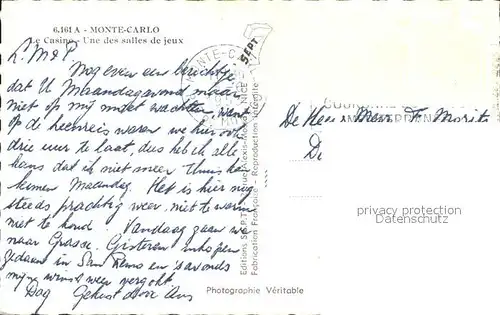 6.161 A - MONTE-CARLO
Le Casino - Une des salles de jeux
L. M & P
Nog even een berichtje
dat U Maandagavond maar
niet op mij moet wachten, want
op de heenreis waren we hier ook
drie uur te laat, dus heb ik alle
kans dat ik niet meer thuis kan
komen Maandag. Het is hier nog
steeds prachtig weer, niet te warm
niet te koud. Vandaag gaan we
naar Grasse. Gisteren inkopen
gedaan in San Remo en 's avonds
mijn winst weer vergokt
Dag Gekust door
MONTE-C
Editions SEPT
NICE
Fabrication Française - Reproduction Interdite
SEPT
De Heer Mevr. F.
D
privacy protection
Datenschutz
Photographie Véritable